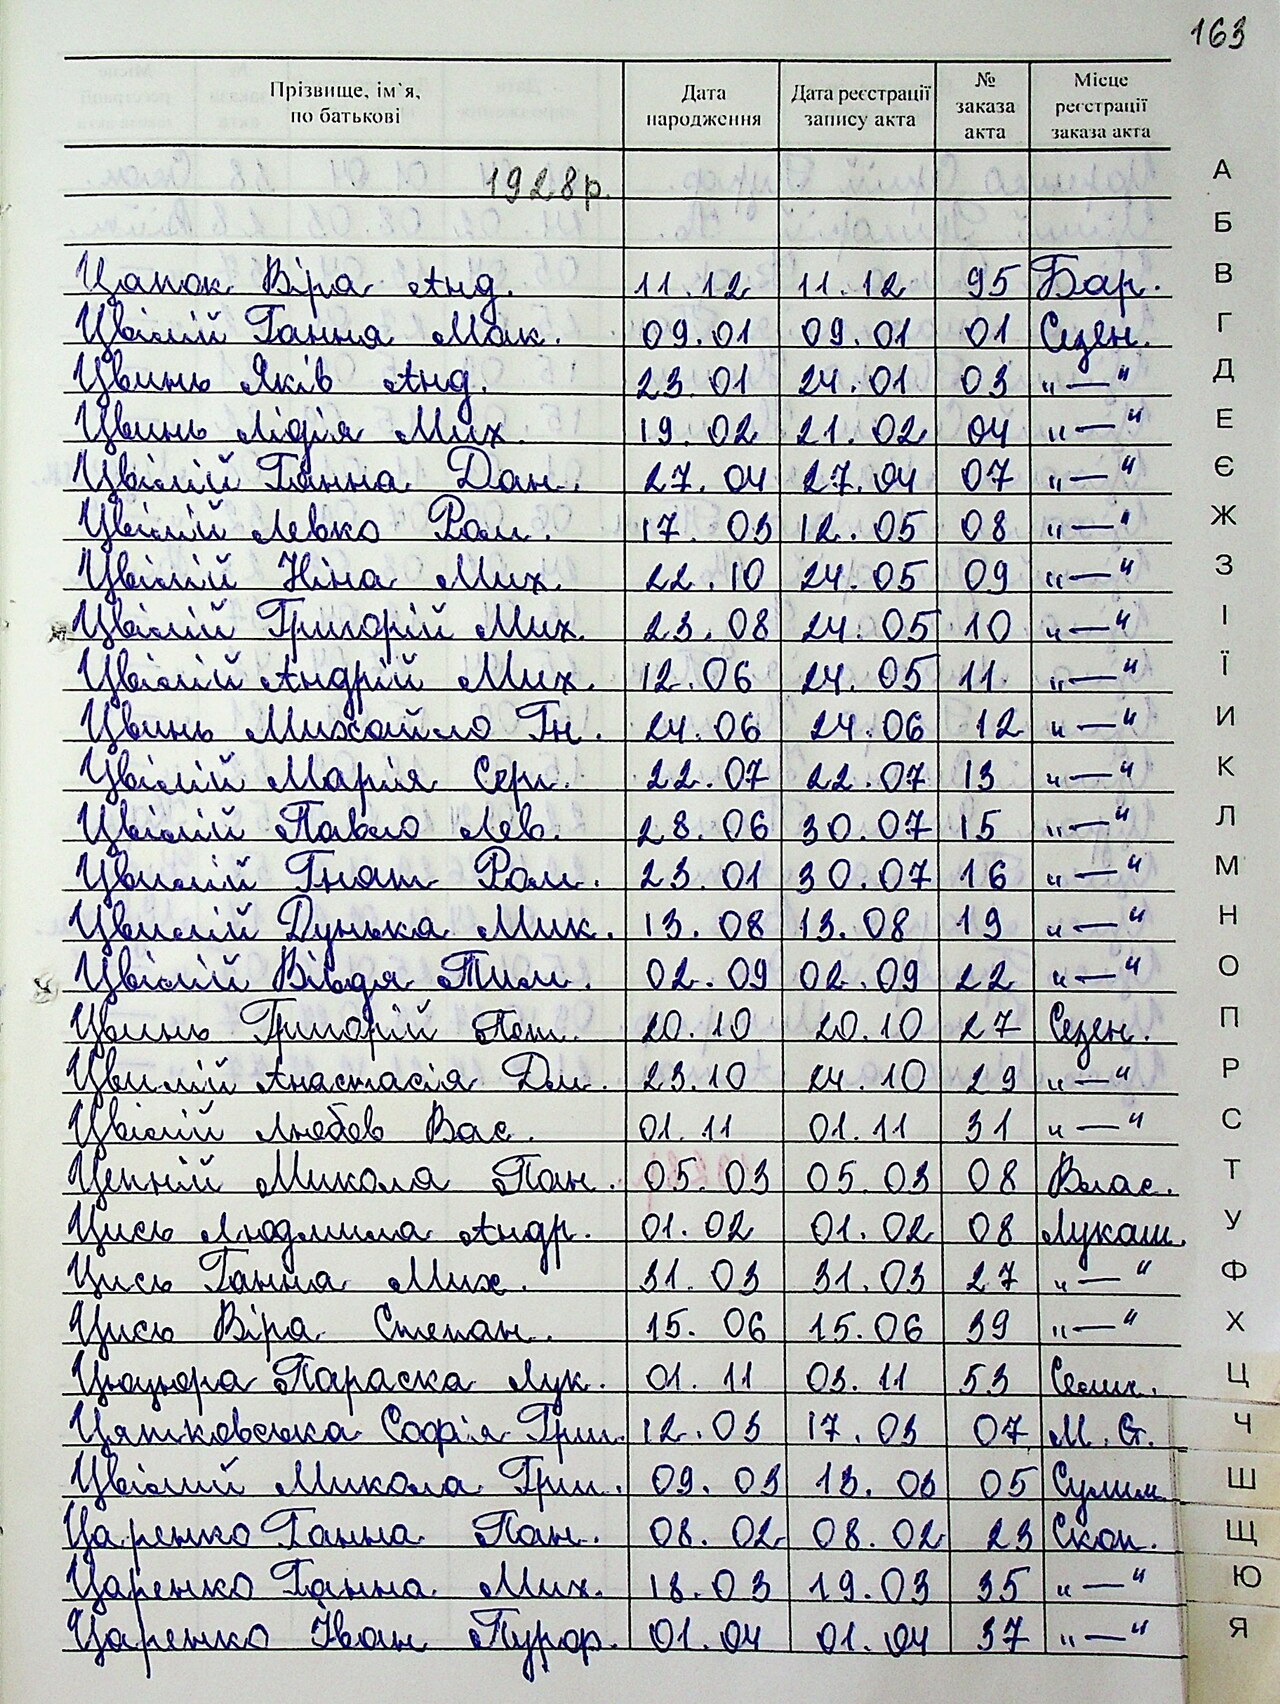 163
Прізвище, ім`я, по батькові Дата народження Дата реєстрації запису акта № заказа акта Місце реєстрації заказа акта
1928р.
А
Б
Цапок Віра Анд. 11.12 11.12 95 Бар. В
Цвілій Гання Мак. 09.01 09.01 01 Сезен. Г
Цвинь Яків Анд. 23.01 24.01 03 „—“ Д
Цвинь Лідія Мих. 19.02 21.02 04 „—“ Е
Цвілій Ганна Дан. 27.04 27.04 07 „—“ Є
Цвілій Левко Ром. 17.03 12.05 08 „—“ Ж
Цвілій Ніна Мих. 22.10 24.05 09 „—“ З
Цвілій Григорій Мих. 23.08 24.05 10 „—“ І
Цвілій Андрій Мих. 12.06 24.05 11 „—“ Ї
Цвинь Михайло Гн. 24.06 24.06 12 „—“ И
Цвілій Марія Серг. 22.07 22.07 13 „—“ К
Цвілій Павло Лев. 28.06 30.07 15 „—“ Л
Цвилій Гнат Ром. 23.01 30.07 16 „—“ М
Цвилій Дунька Мик. 13.08 13.08 19 „—“ Н
Цвілій Вівдя Тим. 02.09 02.09 22 „—“ О
Цвинь Григорій Пот. 20.10 20.10 27 Сезен. П
Цвилій Анастасія Дм. 23.10 24.10 29 „—“ Р
Цвілій Любов Вас. 01.11 01.11 31 „—“ С
Цепній Микола Пан. 05.03 05.03 08 Влас. Т
Цись Людмила Андр. 01.02 01.02 08 Лукаш. У
Цись Ганна Мих. 31.03 31.03 27 „—“ Ф
Цись Віра Степан. 15.06 15.06 39 „—“ Х
Цюцюра Параска Лук. 01.11 03.11 53 Семи. Ц
Цятковська Софія Григ. 12.03 17.03 07 М. Ст. Ч
Цвілий Микола Григ. 09.03 13.03 05 Сулим. Ш
Царенко Ганна Пан. 08.02 08.02 23 Скоп. Щ
Царенко Ганна Мих. 18.03 19.03 35 „—“ Ю
Царенко Іван Пурфр. 01.04 01.04 37 „—“ Я